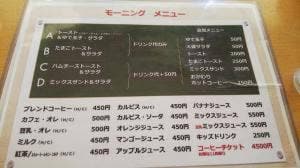 モーニング メニュー
A トースト
&ゆで玉子・サラダ
B たまごトースト
&サラダ
C ハムチーズトースト
&サラダ
D ミックスサンド&サラダ
ドリンク代のみ
ドリンク代+50円
ゆで玉子 50円
トースト
たまごトースト
ミックスサンド
おかわり
ホットコーヒー
ブレンドコーヒー 450円
カフェ・オレ 500円
豆乳・オレ 500円
ミルク 450円
紅茶 450円
カルピス 450円
カルピス・ソーダ 450円
オレンジジュース 450円
マンゴージュース 450円
アップルジュース 450円
バナナジュース 500円
ミックスジュース 550円
ミックスジュース 550円
キッズドリンク
コーヒーチケット 4500円